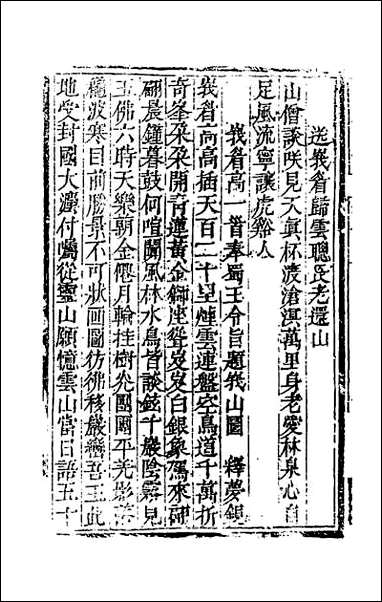 送峩眉歸雲聰長老還山
山僧談咲見天真杯渡滄溟萬里身老愛林泉心自
足風流寧讓虎谿人
峩眉高一首奉蜀王令旨題峩山圖 釋夢
峩眉高高插天百二十里煙雲連盤空鳥道千萬折
奇峯朶朶開青蓮黃金獅座聳岌岌白銀象駕來翩
翩晨鐘暮鼓何喧闐風林水鳥皆談鉉千巖陰靄見
玉佛六時天樂朝金僊月輪挂桂樹光團團平羌影落
龍波寒目前勝景不可狀画圖彷彿移巖巒吾王此
地受封國大灋付囑從靈山願憶雲山當日語五十